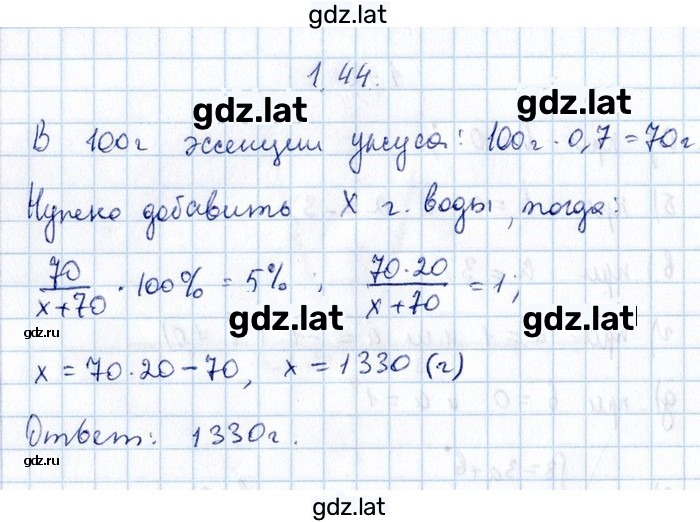 gdz.lat
1.44.
gdz.lat
gdz.lat
В 100г эссенции уксуса: 100г · 0,7 = 70г
Нужно добавить x г. воды, тогда:
70/(x+70) · 100% = 5% ; 70·20/(x+70) = 1;
gdz.ru
gdz.lat
gdz.lat
x = 70·20-70, x = 1330 (г)
Ответ: 1330г.
gdz.lat
gdz.ru
gdz.lat